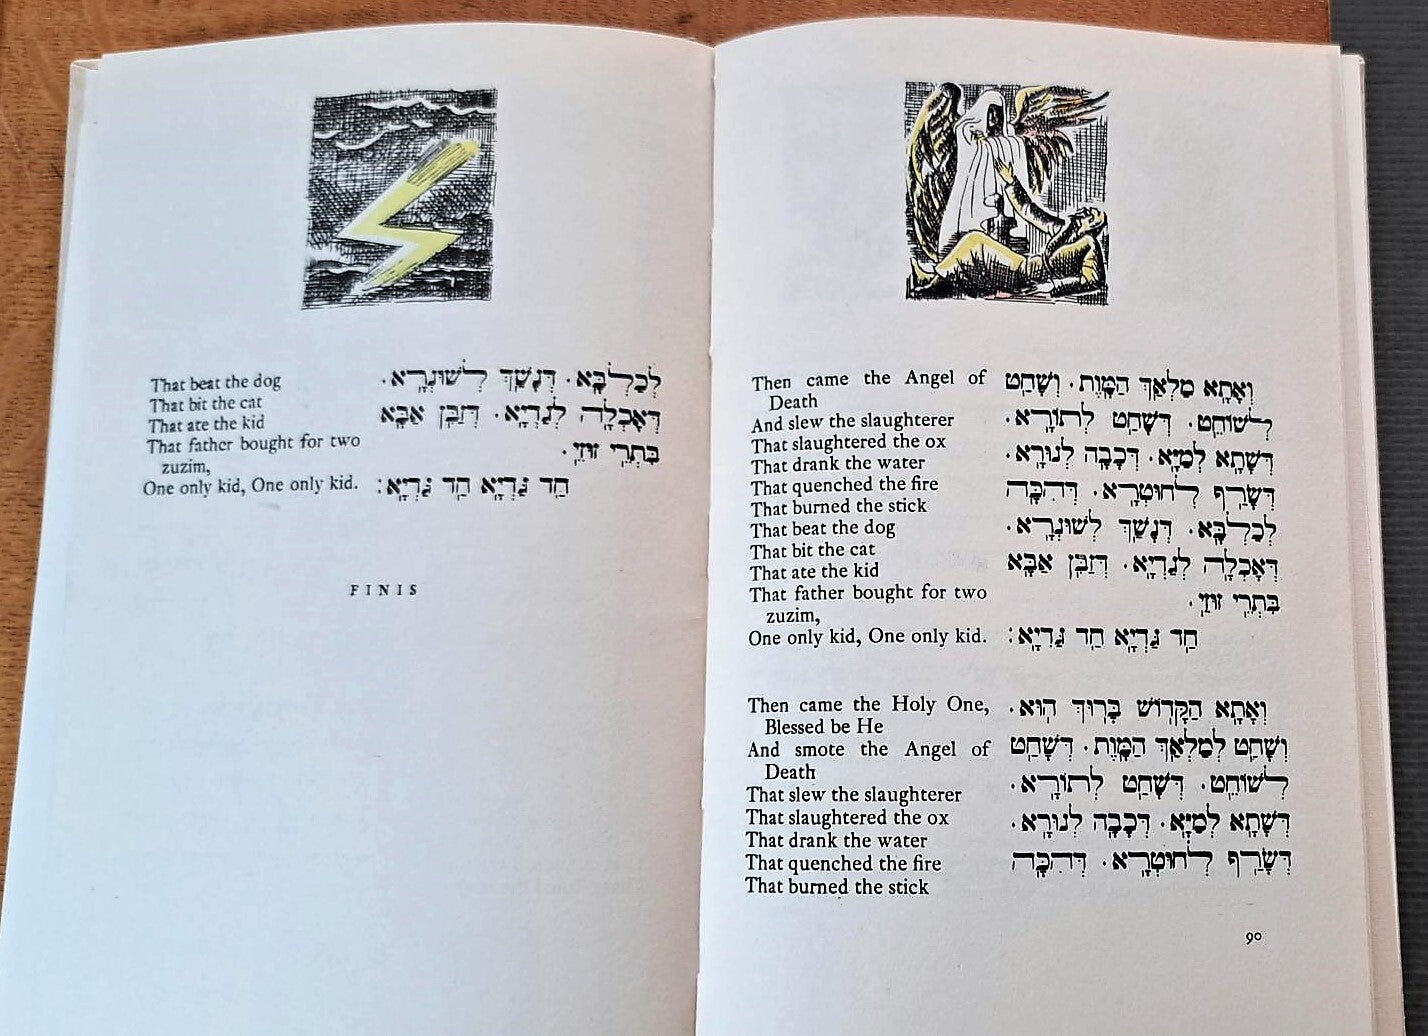 Then came the Angel of
Death
And slew the slaughterer
That slaughtered the ox
That drank the water
That quenched the fire
That burned the stick
That beat the dog
That bit the cat
That ate the kid
That father bought for two
zuzim,
One only kid, One only kid.
וְאָתָא מַלְאַךְ הַמָּוֶת. וְשָׁחַט
לְשׁוֹחֵט. דְּשָׁחַט לְתוֹרָא.
דְּשָׁתָא לְמַיָּא. דְּכָבָה לְנוּרָא.
דְּשָׂרַף לְחוּטְרָא. דְּהִכָּה
לְכַלְבָּא. דְּנָשַׁךְ לְשׁוּנְרָא.
דְּאָכְלָה לְגַדְיָא. דְּזַבִּן אַבָּא
בִּתְרֵי זוּזֵי.
חַד גַּדְיָא חַד גַּדְיָא:
Then came the Holy One,
Blessed be He
And smote the Angel of
Death
That slew the slaughterer
That slaughtered the ox
That drank the water
That quenched the fire
That burned the stick
וְאָתָא הַקָּדוֹשׁ בָּרוּךְ הוּא.
וְשָׁחַט לְמַלְאַךְ הַמָּוֶת. דְּשָׁחַט
לְשׁוֹחֵט. דְּשָׁחַט לְתוֹרָא.
דְּשָׁתָא לְמַיָּא. דְּכָבָה לְנוּרָא.
דְּשָׂרַף לְחוּטְרָא. דְּהִכָּה
90
That beat the dog
That bit the cat
That ate the kid
That father bought for two
zuzim,
One only kid, One only kid.
לְכַלְבָּא. דְּנָשַׁךְ לְשׁוּנְרָא.
דְּאָכְלָה לְגַדְיָא. דְּזַבִּן אַבָּא
בִּתְרֵי זוּזֵי.
חַד גַּדְיָא חַד גַּדְיָא:
FINIS